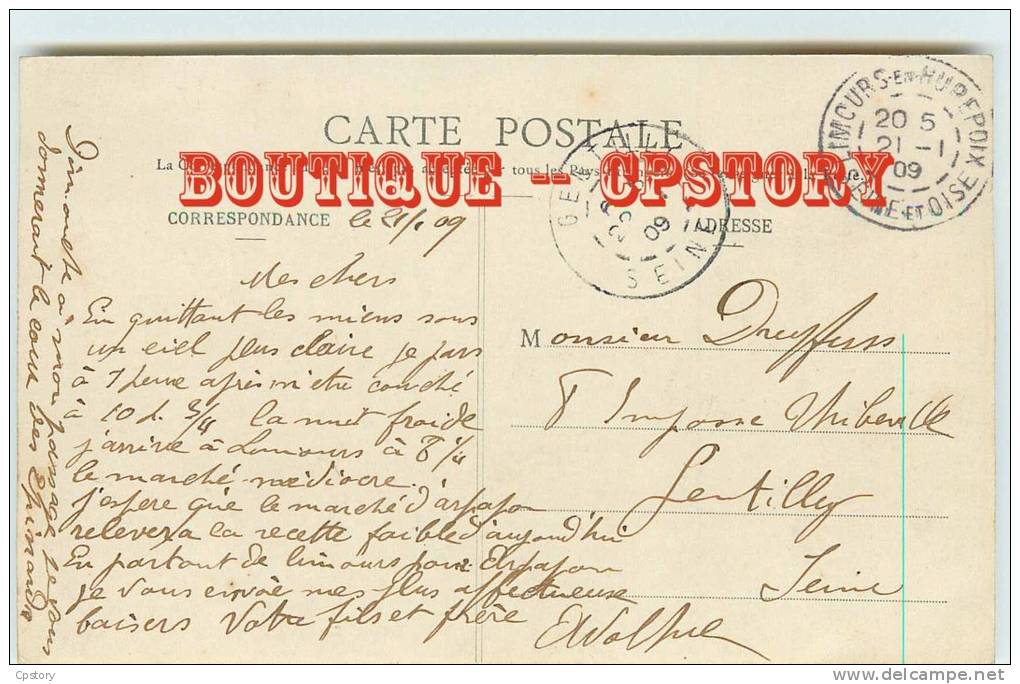 BOUTIQUE -- CPSTORY
CARTE POSTALE
CORRESPONDANCE
ADRESSE
LIMOURS-EN-HUREPOIX
20 5
21 - 1
09
SEINE ET OISE
GENTILLY
09
SEINE
le 21/1 09
Mes chers
En quittant les miens sous
un ciel plus claire je pars
à 1 heure après m'etre couché
à 10 h. 3/4 la nuit froide
j'arrive à Limours à 8 1/4
le marché médiocre.
j'espere que le marché d'arpajon
relevera la recette faible d'aujourd'hui
En partant de limours pour Arpajon
je vous envoie mes plus affectueuse
baisers Votre fils et frère
Adolphe
à mon passage je vous
donnerait le cour des
Monsieur Dreyfuss
8 Impasse Thiberville
Gentilly
Seine
Cpstory
delcampe.net